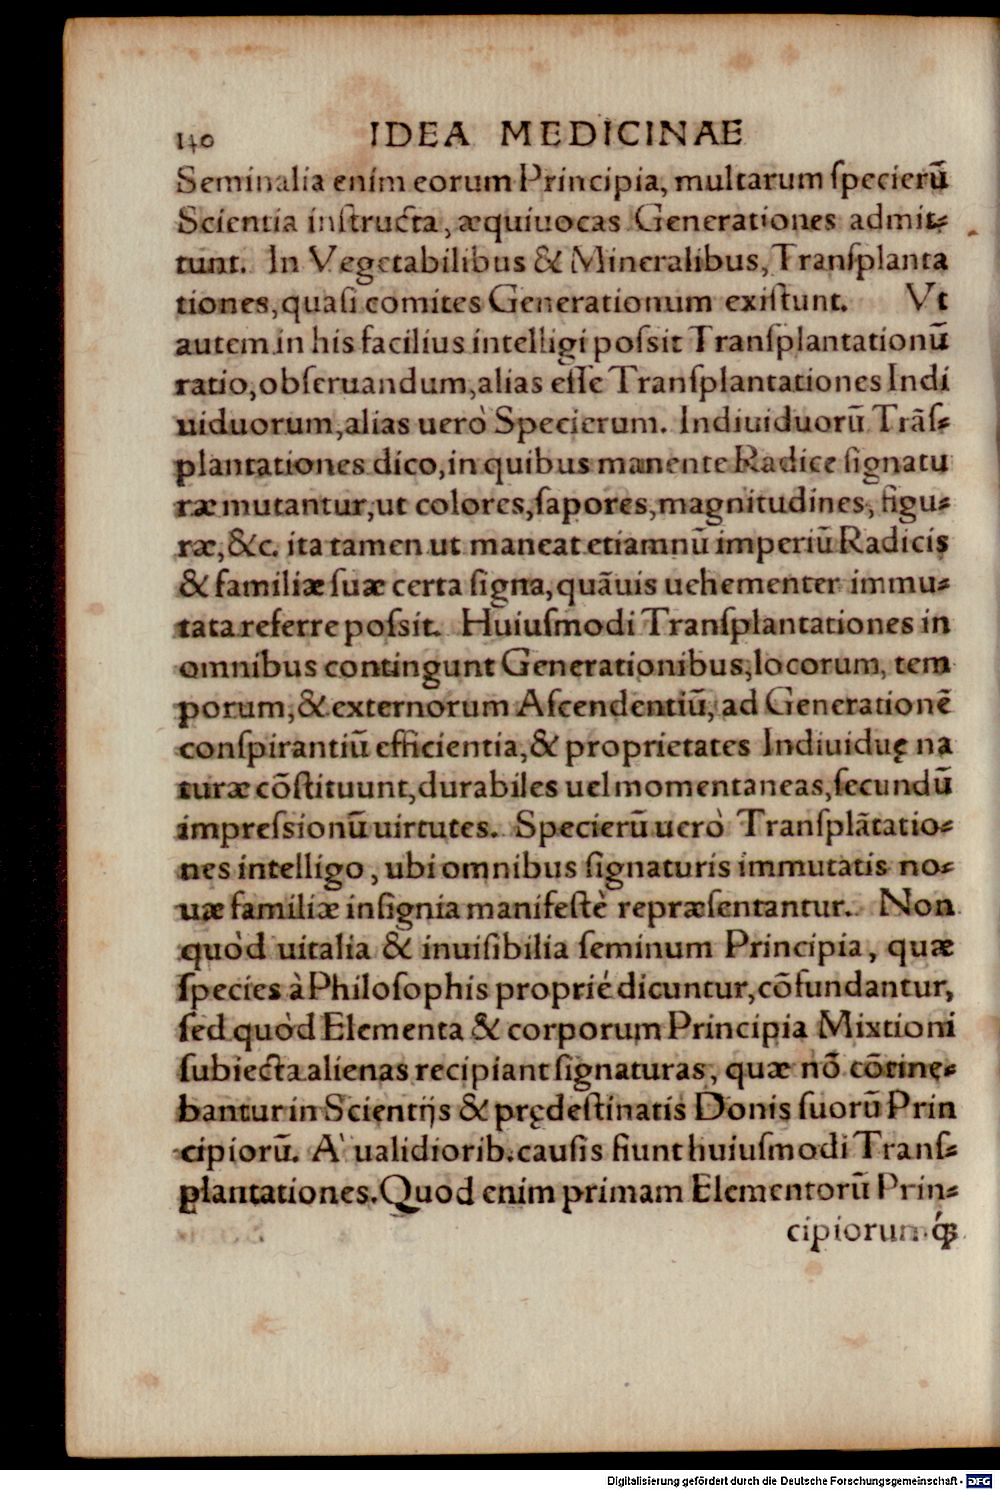 140 IDEA MEDICINAE
Seminalia enim eorum Principia, multarum ſpecierũ
Scientia inſtructa, æquiuocas Generationes admit⸗
tunt. In Vegetabilibus & Mineralibus, Tranſplanta
tiones, quaſi comites Generationum exiſtunt. Vt
autem in his facilius intelligi poſsit Tranſplantationũ
ratio, obſeruandum, alias eſſe Tranſplantationes Indi
uiduorum, alias uerò Specierum. Indiuiduorũ Trãſ⸗
plantationes dico, in quibus manente Radice ſignatu
ræ mutantur, ut colores, ſapores, magnitudines, figu⸗
ræ, &c. ita tamen ut maneat etiamnũ imperiũ Radicis
& familiæ ſuæ certa ſigna, quãuis uehementer immu⸗
tata referre poſsit. Huiuſmodi Tranſplantationes in
omnibus contingunt Generationibus, locorum, tem
porum, & externorum Aſcendentiũ, ad Generationẽ
conſpirantiũ efficientia, & proprietates Indiuiduę na
turæ cõſtituunt, durabiles uel momentaneas, ſecundũ
impreſsionũ uirtutes. Specierũ uerò Tranſplãtatio⸗
nes intelligo, ubi omnibus ſignaturis immutatis no⸗
uæ familiæ inſignia manifeſtè repræſentantur. Non
quòd uitalia & inuiſibilia ſeminum Principia, quæ
ſpecies à Philoſophis proprié dicuntur, cõfundantur,
ſed quòd Elementa & corporum Principia Mixtioni
ſubiecta alienas recipiant ſignaturas, quæ nõ cõtine⸗
bantur in Scientijs & prędeſtinatis Donis ſuorũ Prin
cipiorũ. À ualidiorib. cauſis fiunt huiuſmodi Tranſ⸗
plantationes. Quod enim primam Elementorũ Prin⸗
cipiorumq́;
Digitalisierung gefördert durch die Deutsche Forschungsgemeinschaft - DFG